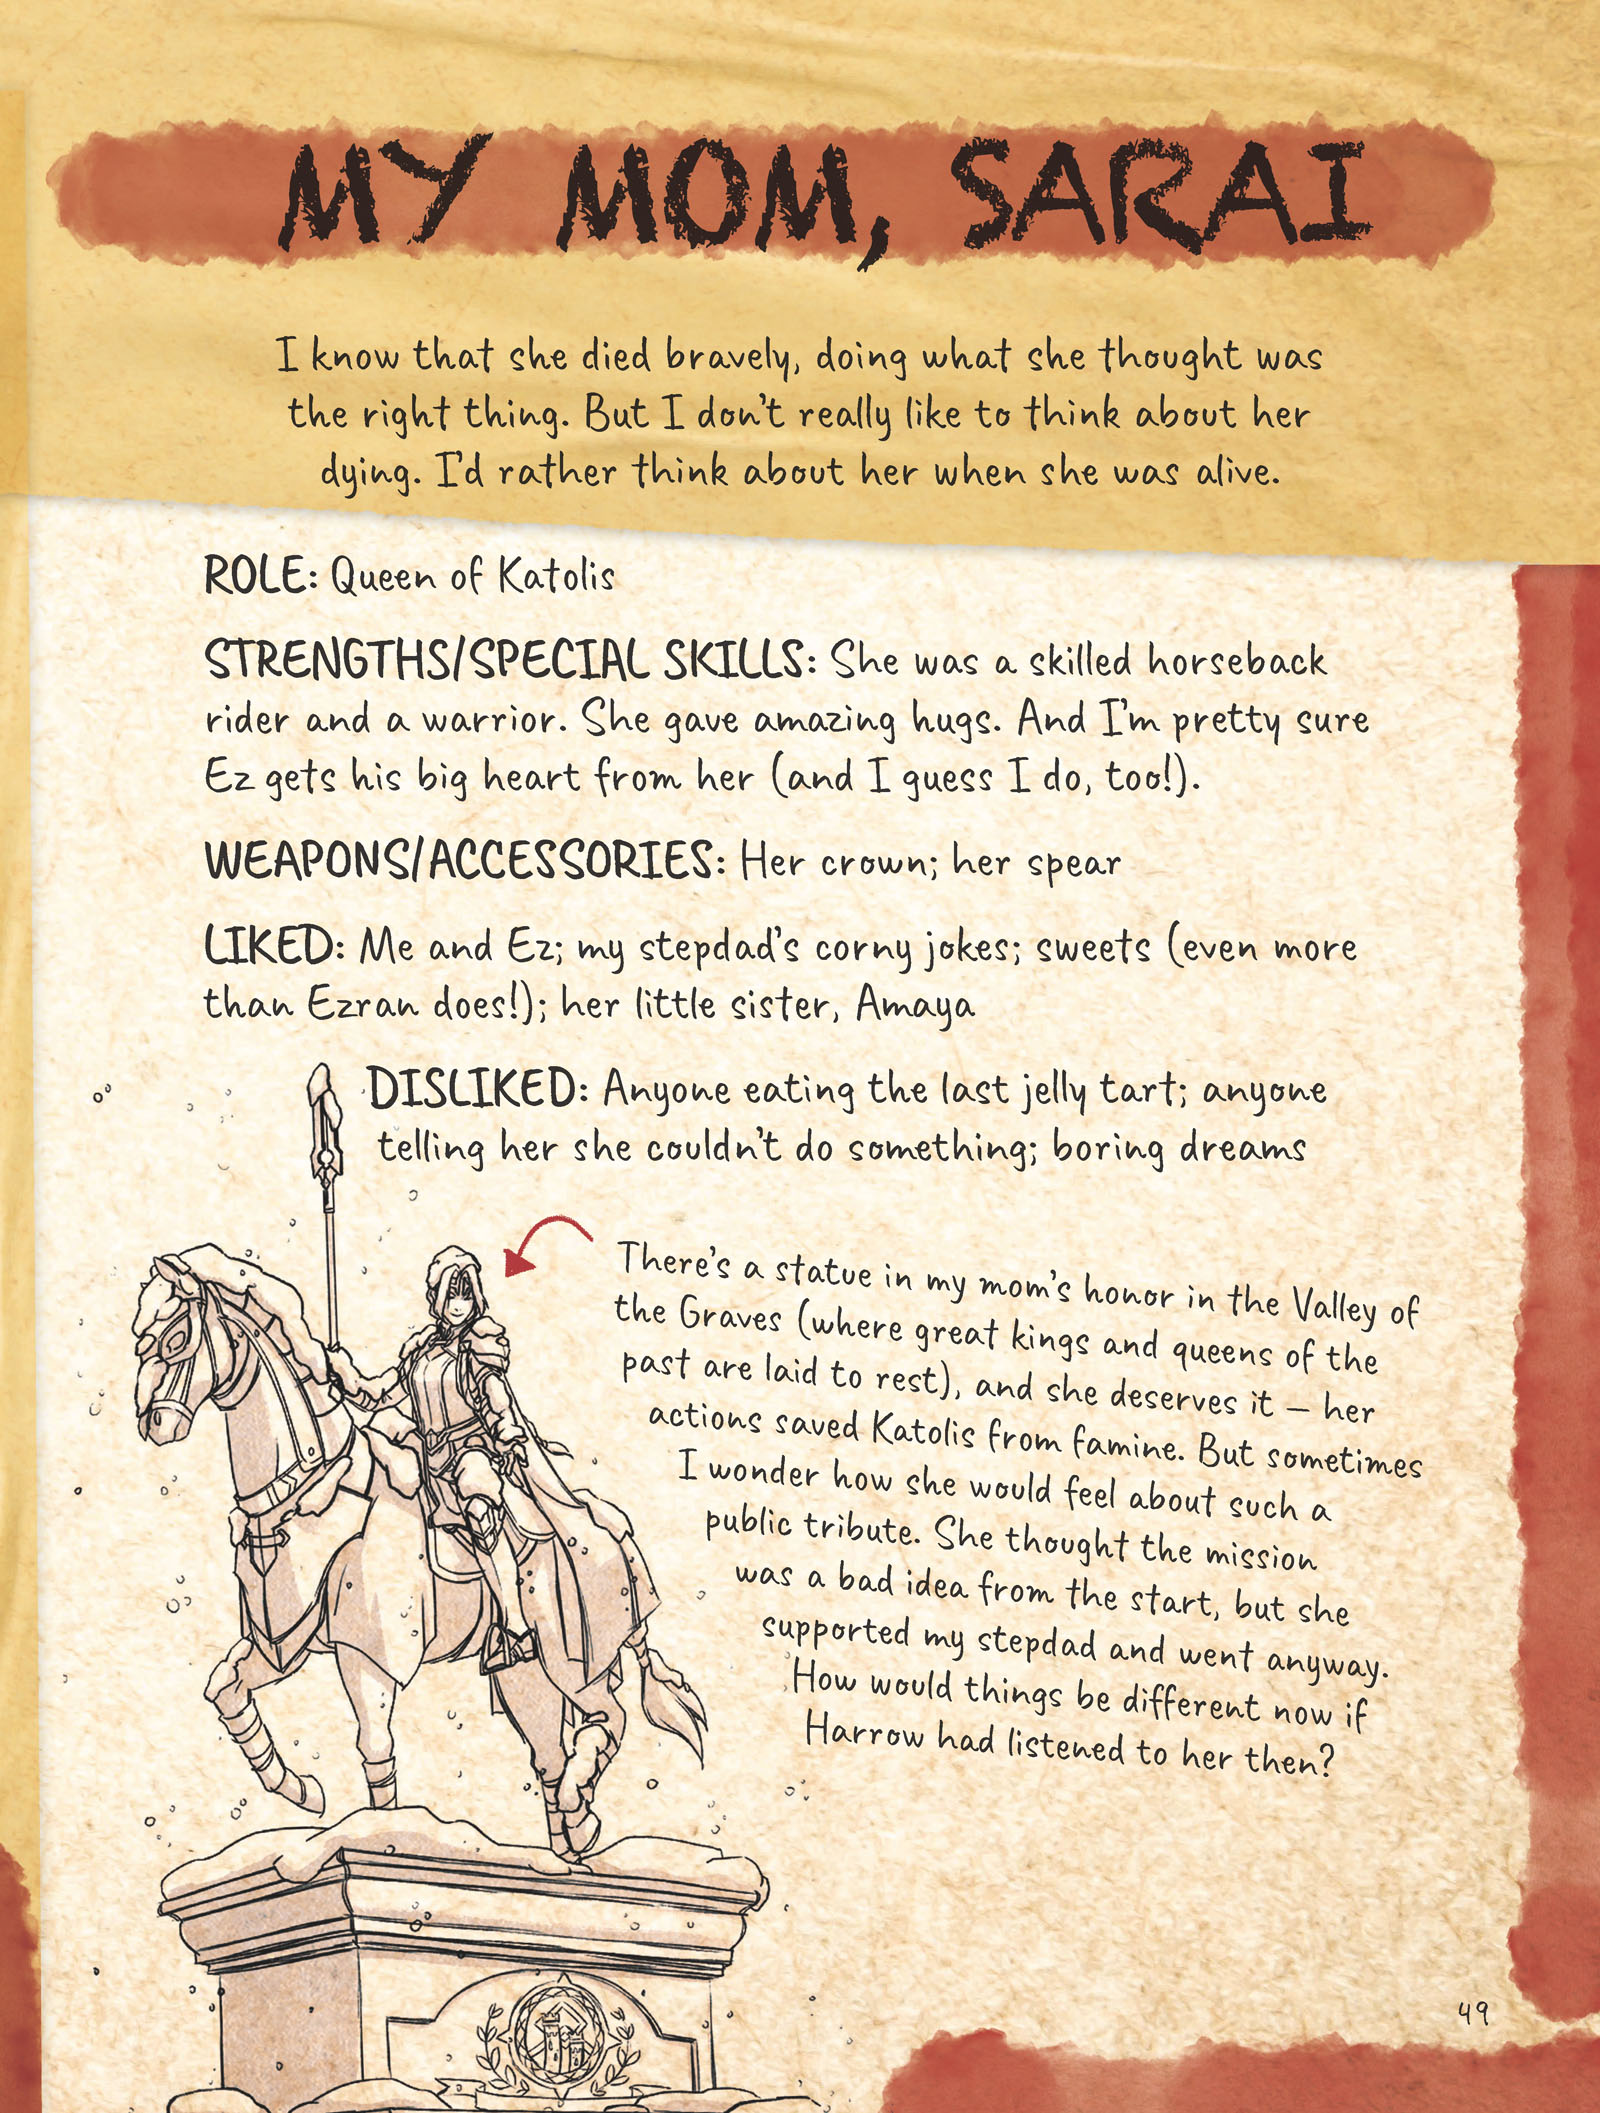 MY MOM, SARAI
I know that she died bravely, doing what she thought was
the right thing. But I don't really like to think about her
dying. I'd rather think about her when she was alive.
ROLE: Queen of Katolis
STRENGTHS/SPECIAL SKILLS: She was a skilled horseback
rider and a warrior. She gave amazing hugs. And I'm pretty sure
Ez gets his big heart from her (and I guess I do, too!).
WEAPONS/ACCESSORIES: Her crown; her spear
LIKED: Me and Ez; my stepdad's corny jokes; sweets (even more
than Ezran does!); her little sister, Amaya
DISLIKED: Anyone eating the last jelly tart; anyone
telling her she couldn't do something; boring dreams
There's a statue in my mom's honor in the Valley of
the Graves (where great kings and queens of the
past are laid to rest), and she deserves it – her
actions saved Katolis from famine. But sometimes
I wonder how she would feel about such a
public tribute. She thought the mission
was a bad idea from the start, but she
supported my stepdad and went anyway.
How would things be different now if
Harrow had listened to her then?
49